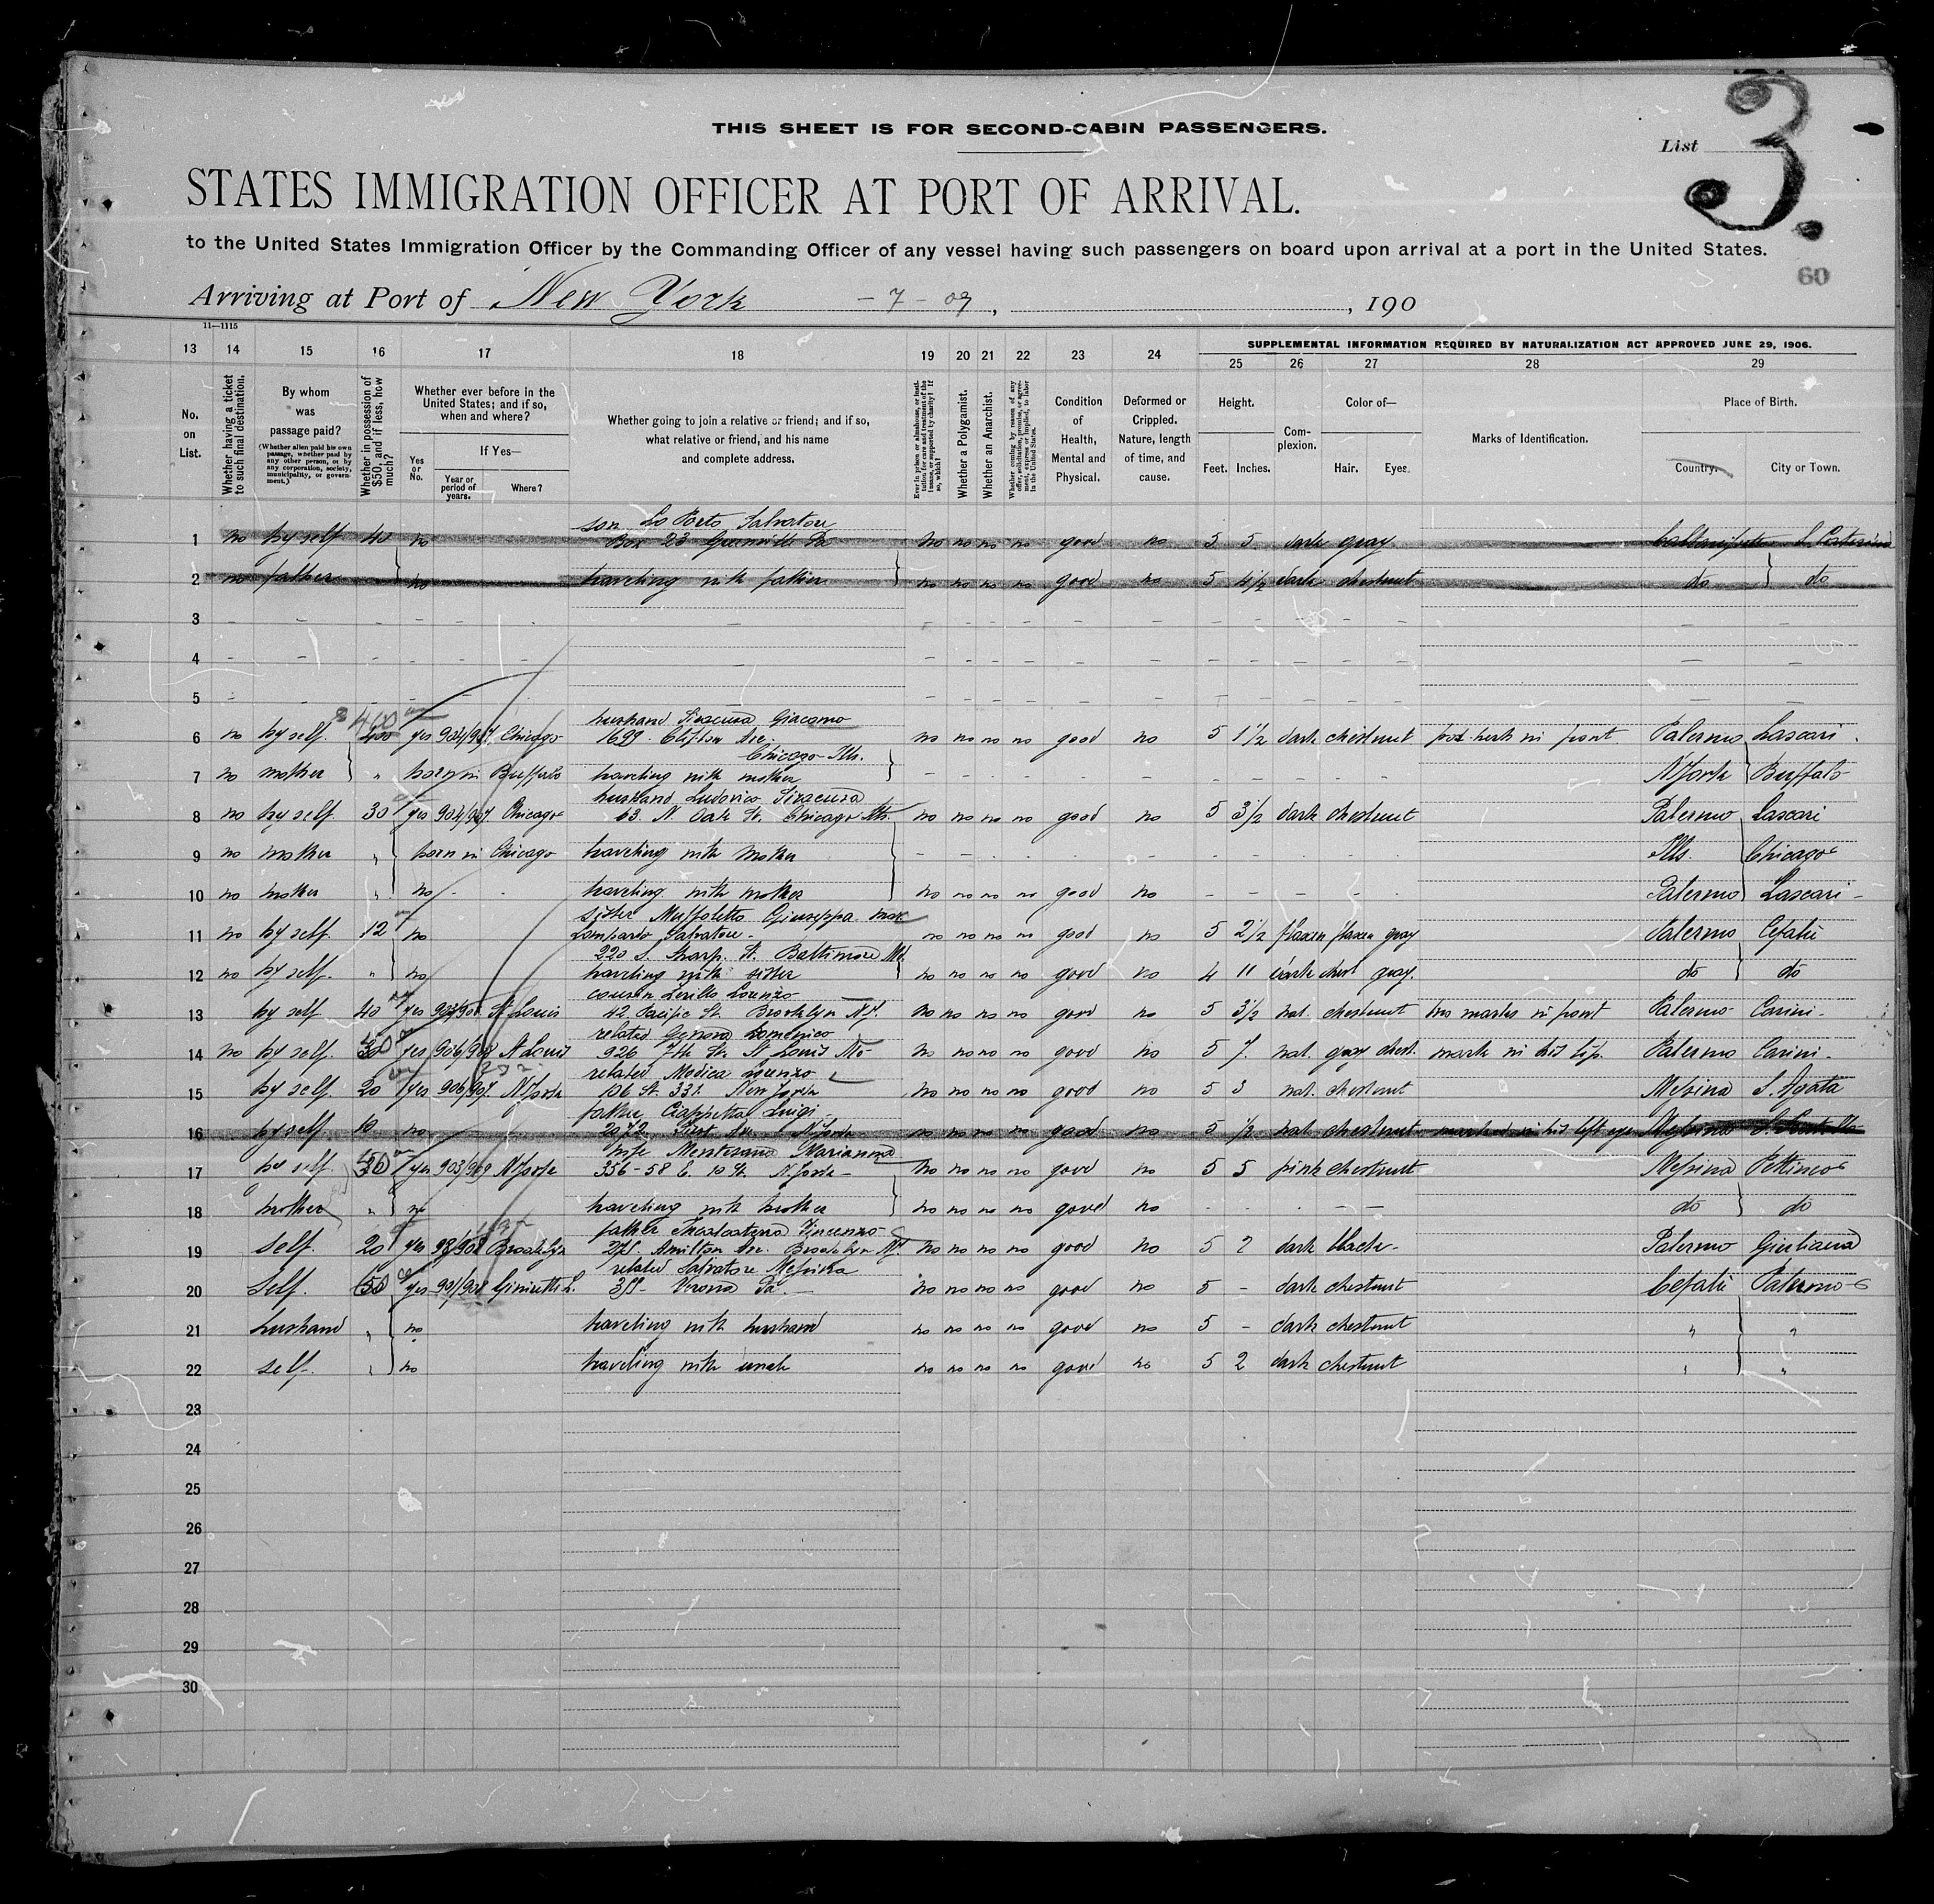 THIS SHEET IS FOR SECOND-CABIN PASSENGERS.
List 3.
STATES IMMIGRATION OFFICER AT PORT OF ARRIVAL.
to the United States Immigration Officer by the Commanding Officer of any vessel having such passengers on board upon arrival at a port in the United States.
60
Arriving at Port of New York - 7 - 09, , 190
11—1115
SUPPLEMENTAL INFORMATION REQUIRED BY NATURALIZATION ACT APPROVED JUNE 29, 1906.
13 14 15 16 17 18 19 20 21 22 23 24 25 26 27 28 29
No. on List.
Whether having a ticket to such final destination.
By whom was passage paid?
(Whether alien paid his own passage, whether paid by any other person, or by any corporation, society, municipality, or government.)
Whether in possession of $50, and if less, how much?
Whether ever before in the United States; and if so, when and where?
Yes or No.
If Yes—
Year or period of years.
Where?
Whether going to join a relative or friend; and if so, what relative or friend, and his name and complete address.
Ever in prison or almshouse, or institution for care and treatment of the insane, or supported by charity? If so, which?
Whether a Polygamist.
Whether an Anarchist.
Whether coming by reason of any offer, solicitation, promise, or agreement, express or implied, to labor in the United States.
Condition of Health, Mental and Physical.
Deformed or Crippled. Nature, length of time, and cause.
Height.
Feet. Inches.
Complexion.
Color of—
Hair. Eyes.
Marks of Identification.
Place of Birth.
Country. City or Town.
son Lo Porto Salvatore
1 no by self 40 no Box 23 no no no no good no 5 5 dark gray
2 no father no traveling with father no no no no good no 5 4½ dark chestnut do do
3
4
5
400 husband Siracusa Giacomo
6 no by self yes 904/907 Chicago 1699 Clifton Ave. no no no no good no 5 1½ dark chestnut Palermo Lascari
Chicago Ills.
7 no mother " born in Buffalo traveling with mother N York Buffalo
husband Ludovico Siracusa
8 no by self 30 yes 904/907 Chicago 63 N. Oak St. Chicago Ills. no no no no good no 5 3½ dark chestnut Palermo Lascari
9 no mother " born in Chicago traveling with mother Ills. Chicago
10 no mother " no traveling with mother no no no no good no Palermo Lascari
sister Muffoletto Giuseppa
11 no by self 12 no Lompardo Salvatore no no no no good no 5 2½ flaxen flaxen gray Palermo Cefalù
220 S. Sharp. St. Baltimore Md.
12 no by self " no traveling with sister no no no no good no 4 11 dark chest gray. do do
cousin Lorenzo
13 by self 40 yes St Louis 42 Pacific St. Brooklyn N.Y. no no no no good no 5 3½ nat. chestnut no marks in front Palermo Carini
related Genova Domenico
14 no by self 30 yes 906/908 St Louis 926 7th St. St Louis Mo no no no no good no 5 7 nat. gray chest. mark in his lip. Palermo Carini
related Modica Lorenzo
15 by self 20 yes 906/907 N York 106 St. 331 New York no no no no good no 5 3 nat. chestnut Messina S. Agata
father Ciappetta Luigi
16 by self 10 no 2072 First Av. N York no no no no good no 5 ½ nat. chestnut Messina
wife Montesano Marianna
17 by self 50 yes 903/909 N York 356-58 E. 10 St. N York no no no no good no 5 5 pink chestnut Messina Pettineo
18 brother " no traveling with brother no no no no good no do do
father Vincenzo
19 self. 20 yes 98/908 Brooklyn Amilton Av. Brooklyn N.Y. no no no no good no 5 2 dark black Palermo Giuliana
related Salvatore Messina
20 Self. 50 yes 901/908 Verona Pa. no no no no good no 5 - dark chestnut Cefalù Palermo
21 husband " no traveling with husband no no no no good no 5 - dark chestnut " "
22 self. " no traveling with uncle no no no no good no 5 2 dark chestnut " "
23
24
25
26
27
28
29
30